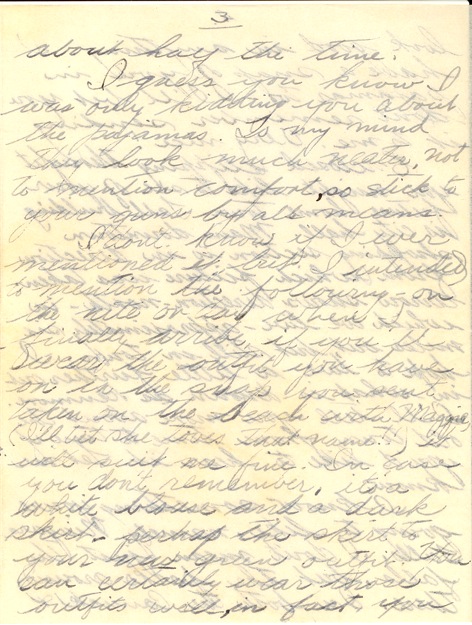 3
about half the time.
I guess you know I
was only kidding you about
the pajamas. To my mind
they look much neater, not
to mention comfort, so stick to
your guns by all means.
I don't know if I ever
mentioned it but I intended
to mention the following on
the nite or day when I
finally arrive, if you'll
wear the outfit you have
on in the snap you sent
taken on the beach with Maggie
(I'll bet she loves that name!!) it
will suit me fine. In case
you don't remember, it's a
white blouse and a dark
skirt - perhap the skirt to
your new green outfit. You
can certainly wear those
outfits well, in fact you